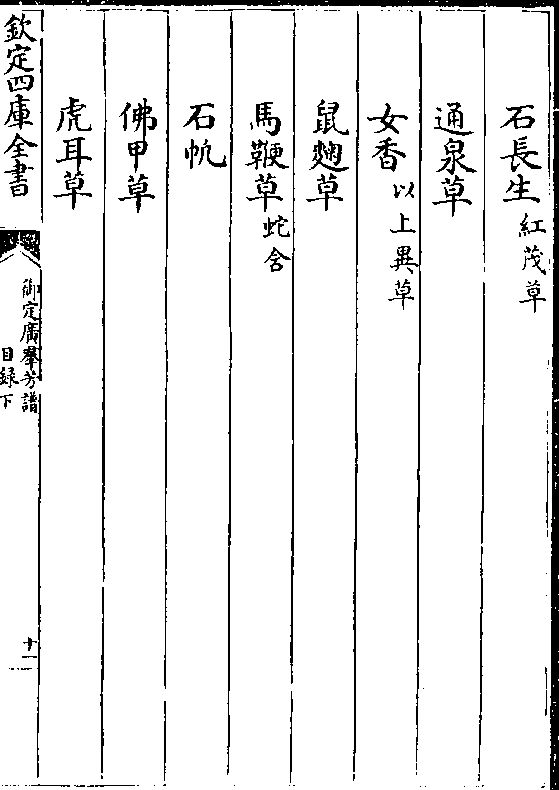 石長生紅茂草
通泉草
女香以上異草
鼠麴草
馬鞭草蛇含
石帆
佛甲草
虎耳草
欽定四庫全書
御定廣羣芳譜
目録下
十一